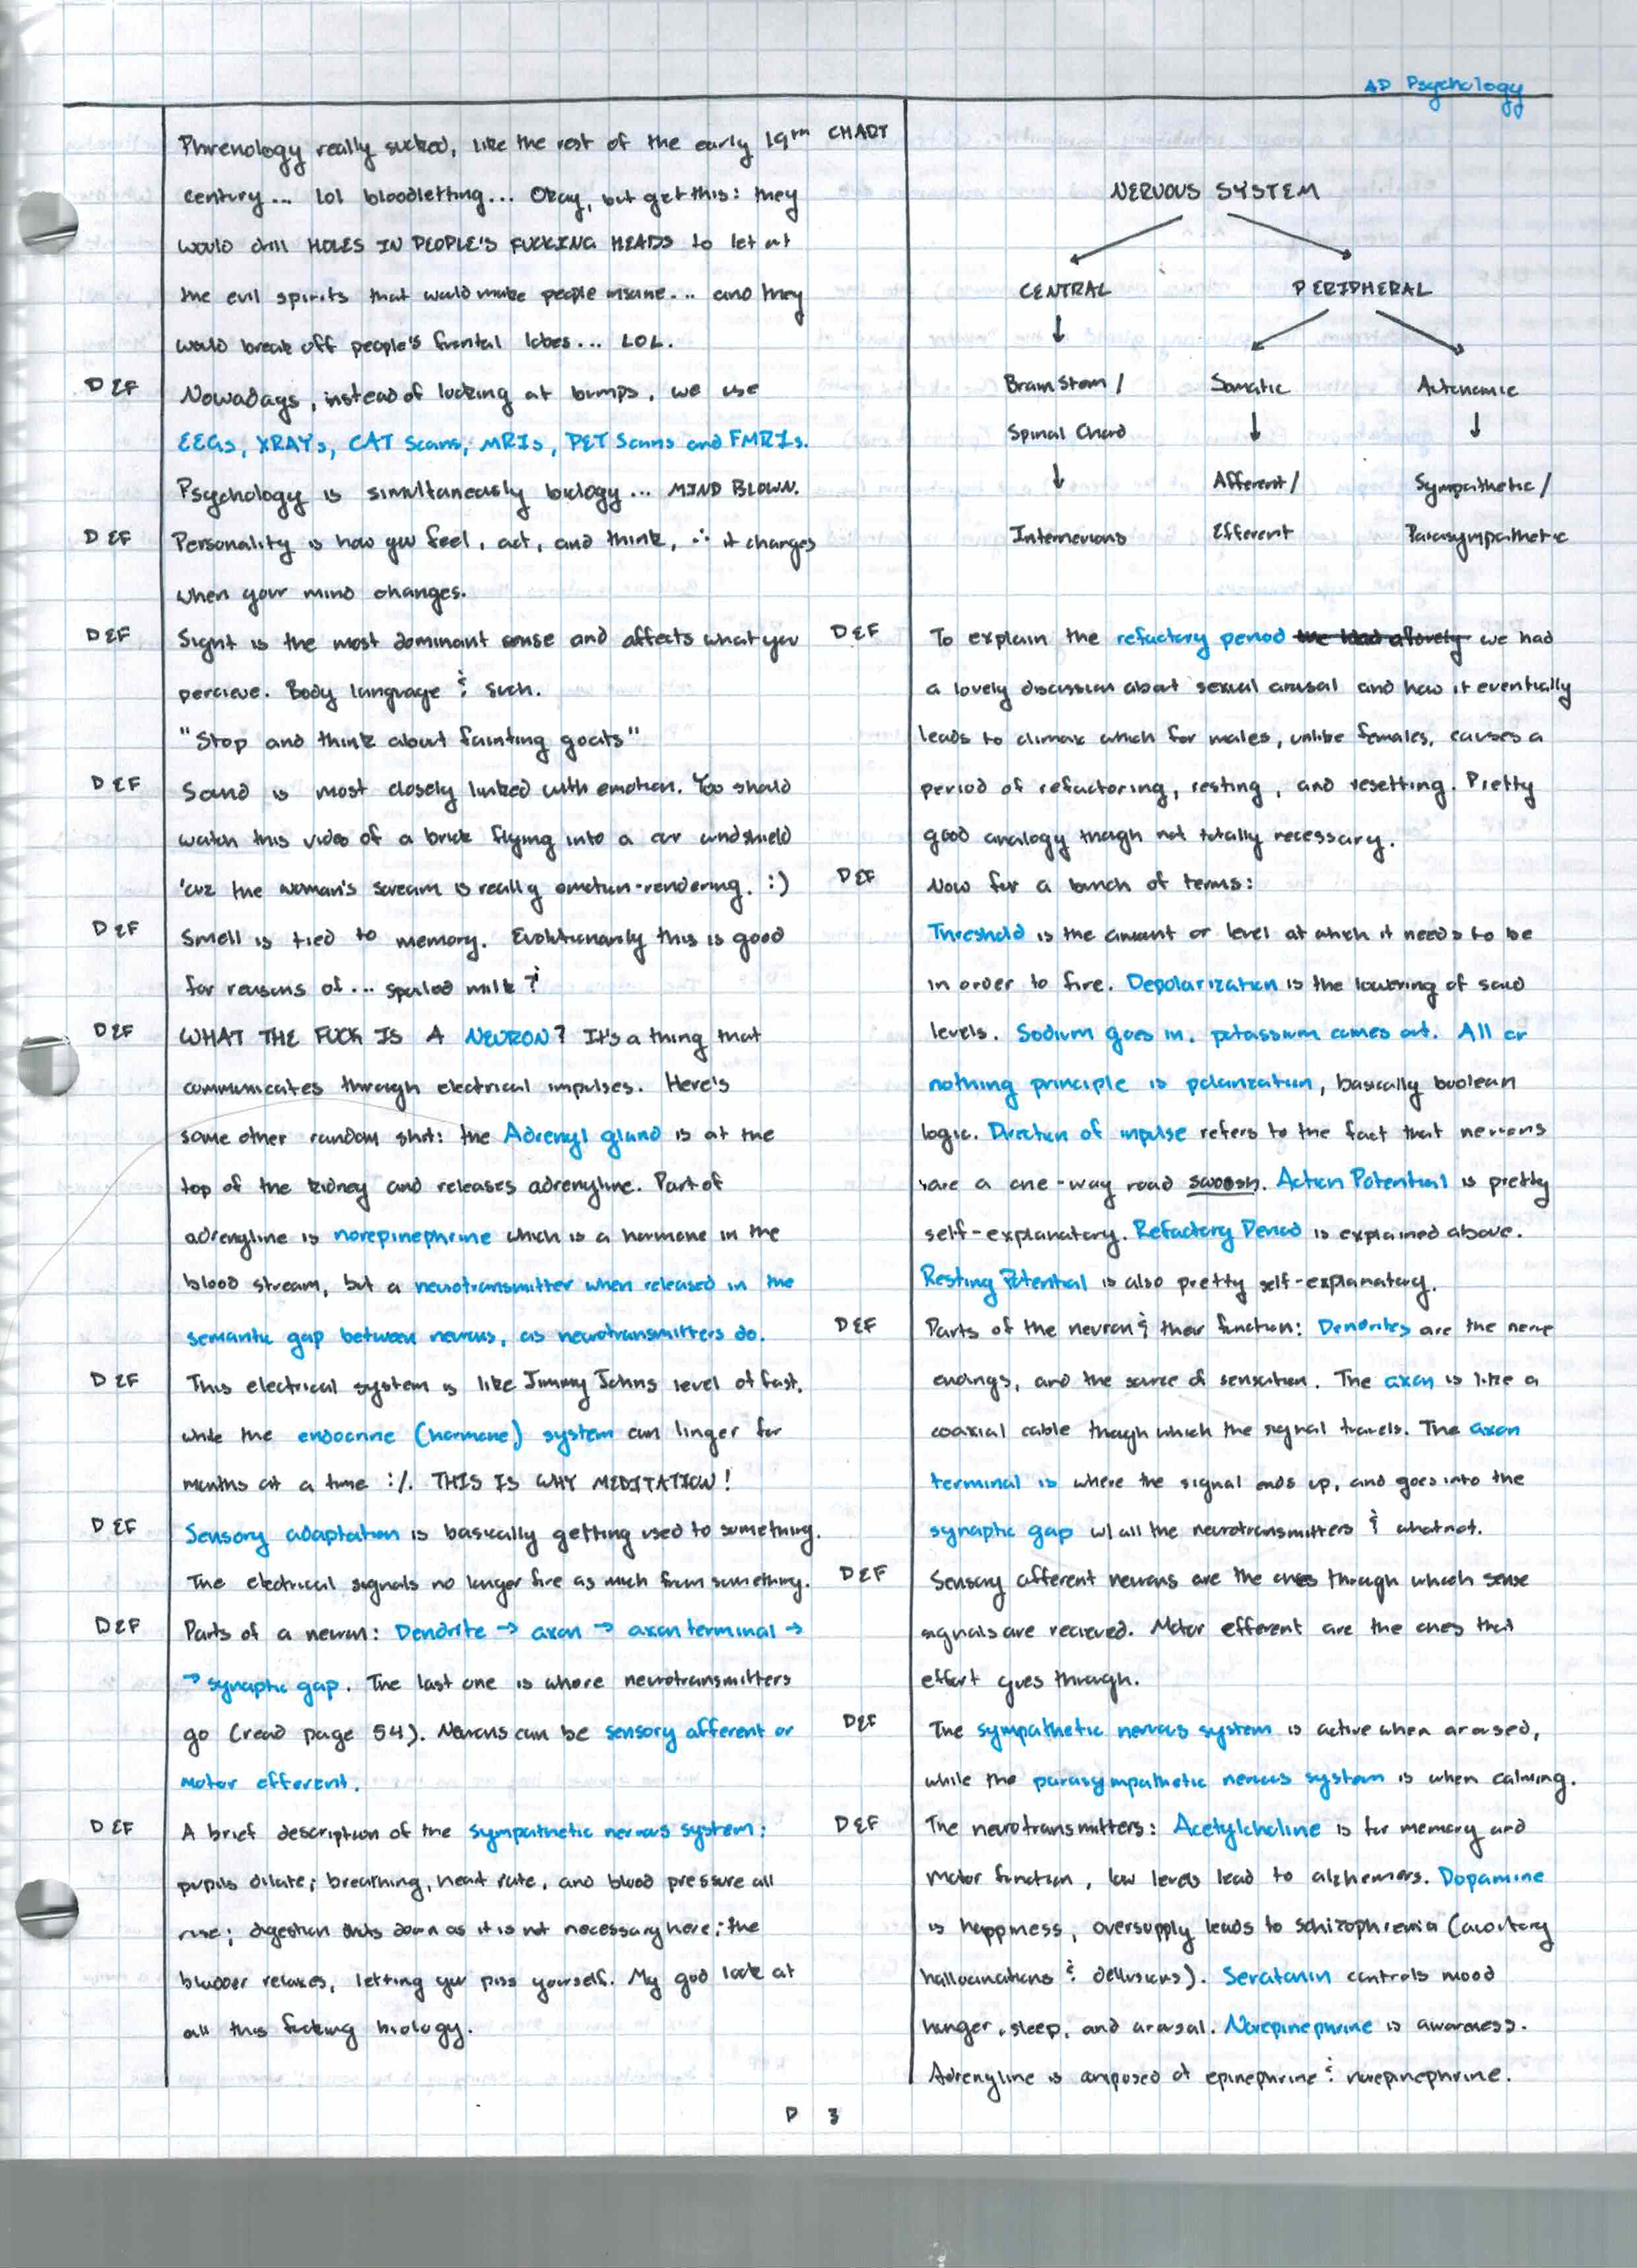 AP Psychology
Phrenology really sucked, like the rest of the early 19th
century... lol bloodletting... Okay, but get this: they
would drill HOLES IN PEOPLE'S FUCKING HEADS to let out
the evil spirits that would make people insane... and they
would break off people's frontal lobes... LOL.
DEF Nowadays, instead of looking at bumps, we use
EEGs, XRAYs, CAT Scans, MRIs, PET Scans and FMRIs.
Psychology is simultaneously biology... MIND BLOWN.
DEF Personality is how you feel, act, and think, ∴ it changes
when your mind changes.
DEF Sight is the most dominant sense and affects what you
percieve. Body language & such.
"Stop and think about fainting goats"
DEF Sound is most closely linked with emotion. You should
watch this video of a brick flying into a car windshield
'cuz the woman's scream is really emotion-rendering. :)
DEF Smell is tied to memory. Evolutionarily this is good
for reasons of... spoiled milk?
DEF WHAT THE FUCK IS A NEURON? It's a thing that
communicates through electrical impulses. Here's
some other random shit: the Adrenyl gland is at the
top of the kidney and releases adrenyline. Part of
adrenyline is norepinephrine which is a hormone in the
blood stream, but a neurotransmitter when released in the
semantic gap between neurons, as neurotransmitters do.
DEF This electrical system is like Jimmy Johns level of fast,
while the endocrine (hormone) system can linger for
months at a time :/. THIS IS WHY MEDITATION!
DEF Sensory adaptation is basically getting used to something.
The electrical signals no longer fire as much from something.
DEF Parts of a neuron: Dendrite → axon → axon terminal →
→ synaptic gap. The last one is where neurotransmitters
go (read page 54). Neurons can be sensory afferent or
motor efferent.
DEF A brief description of the sympathetic nervous system:
pupils dilate; breathing, heart rate, and blood pressure all
rise; digestion shuts down as it is not necessary here; the
bladder relaxes, letting you piss yourself. My god look at
all this fucking biology.
CHART
NERVOUS SYSTEM
CENTRAL PERIPHERAL
Brain Stem / Somatic Autonomic
Spinal Chord
Afferent / Sympathetic /
Interneurons Efferent Parasympathetic
DEF To explain the refactory period we had
a lovely discussion about sexual arousal and how it eventually
leads to climax which for males, unlike females, causes a
period of refactoring, resting, and resetting. Pretty
good analogy though not totally necessary.
DEF Now for a bunch of terms:
Threshold is the amount or level at which it needs to be
in order to fire. Depolarization is the lowering of said
levels. Sodium goes in, potassium comes out. All or
nothing principle is polarization, basically boolean
logic. Direction of impulse refers to the fact that neurons
are a one-way road swoosh. Action Potential is pretty
self-explanatory. Refactory Period is explained above.
Resting Potential is also pretty self-explanatory.
DEF Parts of the neuron & their function: Dendrites are the nerve
endings, and the source of sensation. The axon is like a
coaxial cable though which the signal travels. The axon
terminal is where the signal ends up, and goes into the
synaptic gap w/ all the neurotransmitters & whatnot.
DEF Sensory afferent neurons are the ones through which sense
signals are recieved. Motor efferent are the ones that
effort goes through.
DEF The sympathetic nervous system is active when aroused,
while the parasympathetic nervous system is when calming.
DEF The neurotransmitters: Acetylcholine is for memory and
motor function, low levels lead to alzhemers. Dopamine
is happiness, oversupply leads to schizophrenia (auditory
hallucinations & dellusions). Seratonin controls mood
hunger, sleep, and arousal. Norepinephrine is awareness.
Adrenyline is composed of epinephrine & norepinephrine.
P 3